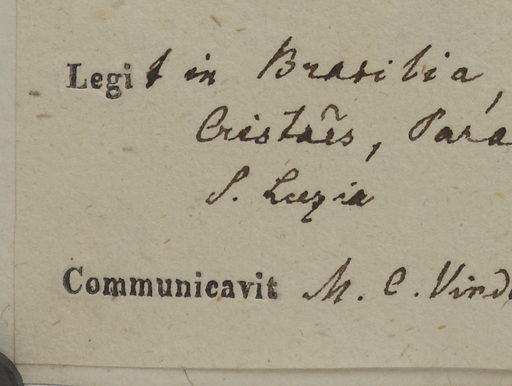 Legit in Brasilia,
Cristaẽs, Pará
S. Luzia
Communicavit M. C. Vind